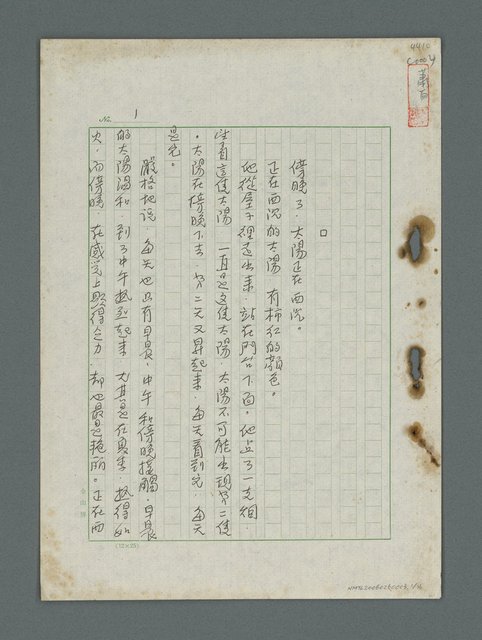 傍晚了,太陽正在西沉。
正在西沉的太陽,有柿紅的顏色。
他從屋子裡走出來,站在門台下面。他点了一支烟
望着這個太陽,一直是這個太陽,太陽不可能出現第二個
。太陽在傍晚下去,第二天又昇起來,每天看到它,每天
是它。
嚴格地說,每天也只有早晨、中午和傍晚接觸,早晨
的太陽溫和,到了中午熱烈起來,尤其是在夏季,熱得如
火,而傍晚,在感覺上顯得乏力,却也最是艳丽。正在西
No. 1
(12×25)
4410
NMTL20080260003,1/16